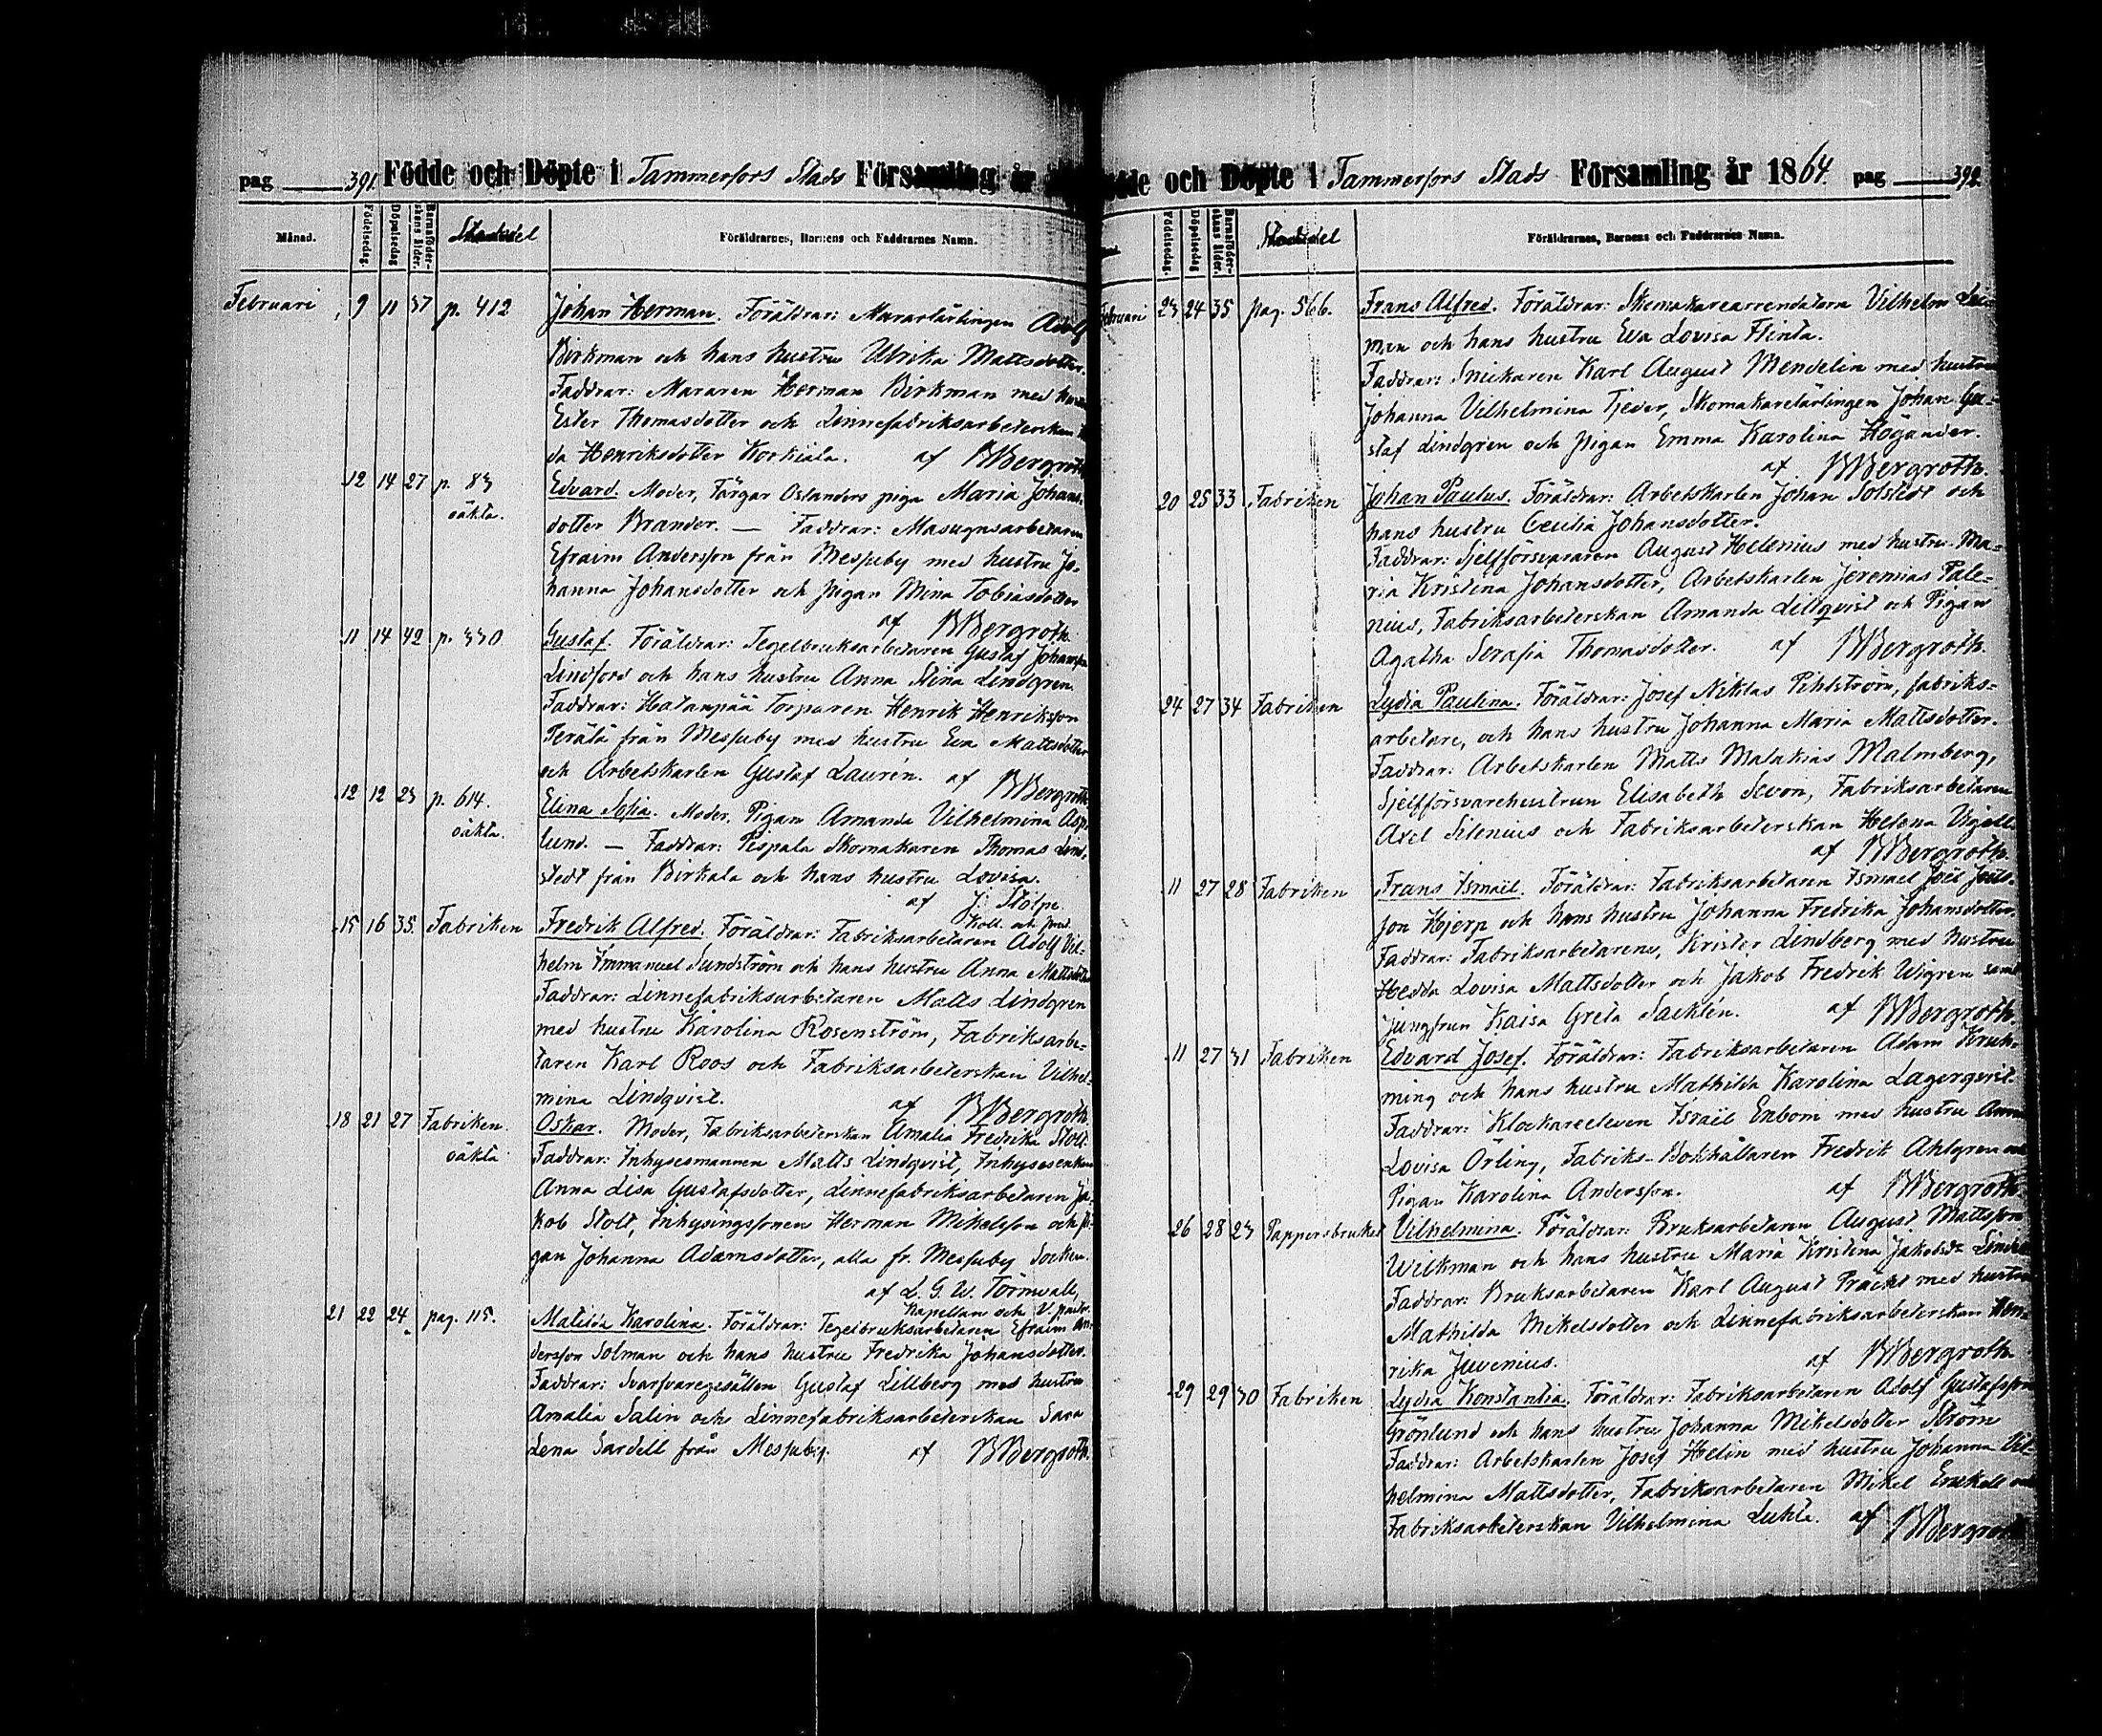 pag 391. Födde och Döpte i Tammerfors Stads Församling år
Månad. Födelsedag. Döpelsedag Barnaföderskans ålder. Föräldrarnes, Barnens och Faddrarnes Namn.
Februari 9 11 37 p. 412 Johan Herman. Föräldrar: Murarlärlingen Adolf
Birkman och hans hustru Ulrika Mattsdotter.
Faddrar: Muraren Herman Birkman med hustru
Ester Thomasdotter och Linnefabriksarbeterskan
da Henriksdotter Korkiala. af BBergroth
12 14 27 p. 83 Edvard. Moder, Färgar Oslanders piga Maria Johans-
oäkta. dotter Brander. — Faddrar: Masugnsarbetaren
Efraim Andersson från Messuby med hustru Jo-
hanna Johansdotter och pigan Mina Tobiasdotter
af BBergroth.
11 14 42 p. 330 Gustaf. Föräldrar: Tegelbruksarbetaren Gustaf Johansson
Lindfors och hans hustru Anna Stina Lindgren.
Faddrar: Hatanpää Torparen Henrik Henriksson
Perälä från Messuby med hustru Eva Mattsdotter
och Arbetskarlen Gustaf Laurén. af BBergroth
12 12 23 p. 614. Elina Sofia. Moder, Pigan Amanda Vilhelmina Asp-
oäkta. lund. — Faddrar: Pispala Skomakaren Thomas Lind-
stedt från Birkala och hans hustru Lovisa.
af J. Stolpe.
Koll. och pred.
15 16 35. Fabriken Fredrik Alfred. Föräldrar: Fabriksarbetaren Adolf Vil-
helm Immanuel Sundström och hans hustru Anna Mattsdotter
Faddrar: Linnefabriksarbetaren Matts Lindgren
med hustru Karolina Rosenström, Fabriksarbe-
taren Karl Roos och Fabriksarbeterskan Vilhel-
mina Lindqvist. af BBergroth.
18 21 27 Fabriken. Oskar. Moder, Fabriksarbeterskan Amalia Fredrika Stolt.
oäkta Faddrar: Inhysesmannen Matts Lindqvist, Inhysesenkan
Anna Lisa Gustafsdotter, Linnefabriksarbetaren Ja-
kob Stolt, Inhysingssonen Herman Mikelsson och pi-
gan Johanna Adamsdotter, alla fr. Messuby Socken.
af L. G. W. Törnvall,
Kapellan och V. pastor.
21 22 24. pag. 115. Matilda Karolina. Föräldrar: Tegelbruksarbetaren Efraim An-
dersson Solman och hans hustru Fredrika Johansdotter.
Faddrar: Svarfvaregesällen Gustaf Lillberg med hustru
Amalia Salin och Linnefabriksarbeterskan Sara
Lena Sardell från Messuby. af BBergroth.
och Döpte i Tammerfors Stads Församling år 1864. pag 392.
Födelsedag. Döpelsedag Barnaföderskans ålder. Föräldrarnes, Barnens och Faddrarnes Namn.
Februari 23 24 35. pag. 566. Frans Alfred. Föräldrar: Skomakarearrendatorn Vilhelm
man och hans hustru Eva Lovisa Flinta.
Faddrar: Snickaren Karl August Mendelin med hustru
Johanna Vilhelmina Tjeder, Skomakarelärlingen Johan Gu-
staf Lindgren och pigan Emma Karolina Högander.
af BBergroth.
20 25 33 Fabriken Johan Paulus. Föräldrar: Arbetskarlen Johan Solstedt och
hans hustru Cecilia Johansdotter.
Faddrar: Sjelfförsvararen August Helenius med hustru Ma-
ria Kristina Johansdotter, Arbetskarlen Jeremias Pale-
nius, Fabriksarbeterskan Amanda Lillqvist och Pigan
Agatha Serafia Thomasdotter. af BBergroth.
24 27 34 Fabriken Lydia Paulina. Föräldrar: Josef Niklas Pihlström, fabriks-
arbetare, och hans hustru Johanna Maria Mattsdotter.
Faddrar: Arbetskarlen Matts Malakias Malmberg,
Sjelfförsvarehustrun Elisabeth Sevon, Fabriksarbetaren
Axel Silenius och Fabriksarbeterskan Helena Vigell.
af BBergroth.
11 27 28 Fabriken Frans Ismaël. Föräldrar: Fabriksarbetaren Ismael Joël Joels-
son Hjerp och hans hustru Johanna Fredrika Johansdotter.
Faddrar: Fabriksarbetarene, Krister Lindberg med hustru
Hedda Lovisa Mattsdotter och Jakob Fredrik Wigren samt
jungfrun Kaisa Greta Sacklén. af BBergroth.
11 27 31 Fabriken Edvard Josef. Föräldrar: Fabriksarbetaren Adam
ming och hans hustru Mathilda Karolina Lagerqvist.
Faddrar: Klockareeleven Israël Enbom med hustru Anna
Lovisa Örling, Fabriks-Bokhållaren Fredrik Ahlgren och
Pigan Karolina Andersson. af BBergroth.
26 28 23 Pappersbruket Vilhelmina. Föräldrar: Bruksarbetaren August Mattsson
Wilkman och hans hustru Maria Kristina Jakobsdr
Faddrar: Bruksarbetaren Karl August Präckt med hustru
Mathilda Mikelsdotter och Linnefabriksarbeterskan Hen-
rika Juvenius. af BBergroth.
29 29 30 Fabriken Lydia Konstantia. Föräldrar: Fabriksarbetaren Adolf Gustafsson
Grönlund och hans hustru Johanna Mikelsdotter Ström
Faddrar: Arbetskarlen Josef Helin med hustru Johanna Vil-
helmina Mattsdotter, Fabriksarbetaren Mikel Enckell och
Fabriksarbeterskan Vilhelmina Luhta. af BBergroth